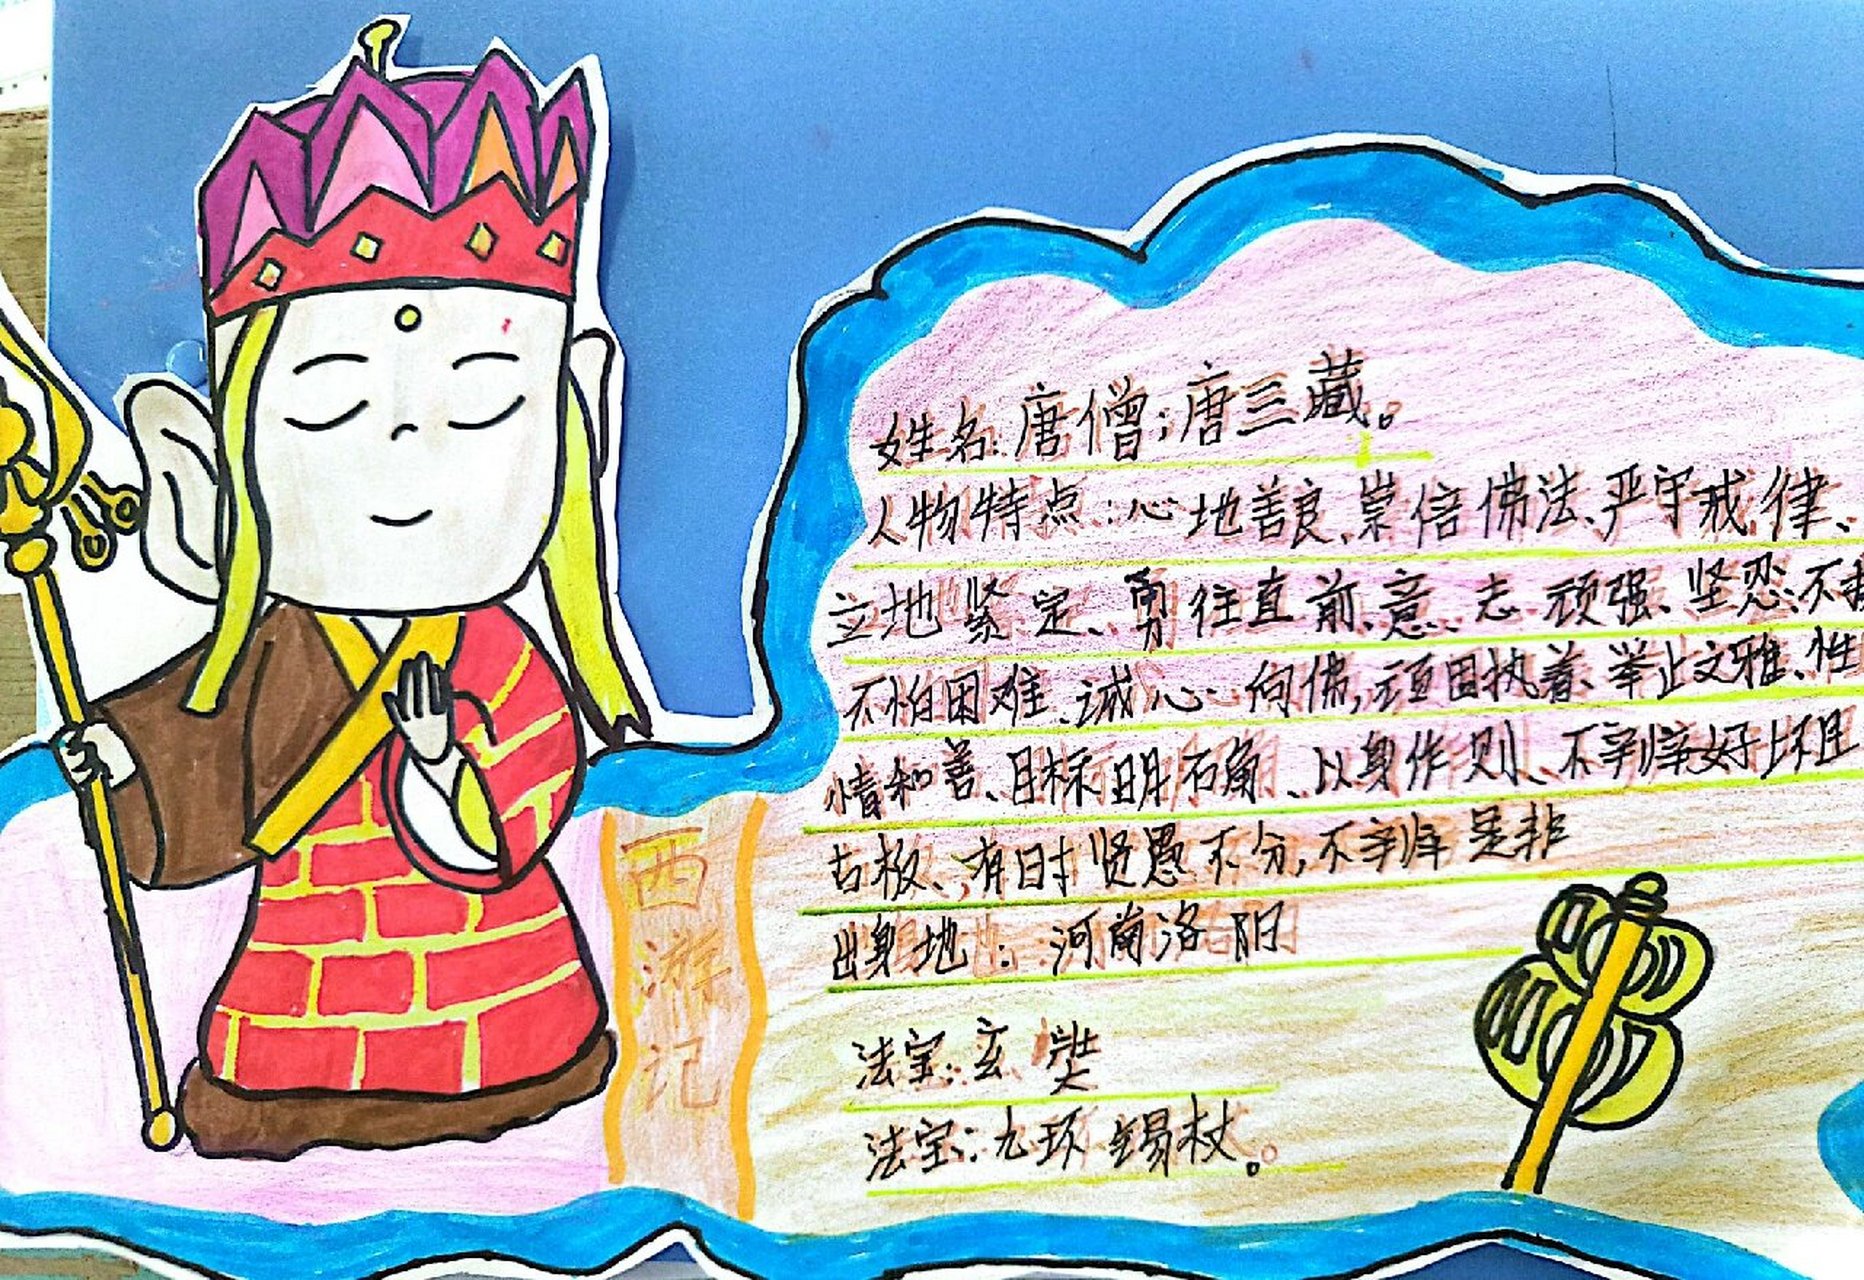 西游记
姓名:唐僧;唐三藏。
人物特点:心地善良、崇信佛法、严守戒律、
立地紧定、勇往直前、意志顽强、坚忍不
不怕困难、诚心向佛,顽固执着、举止文雅、性
情和善、目标明确、以身作则、不辛辛好坏且
古板、有时贤愚不分,不辛辛是非
出身地:河南洛阳
法宝:玄奘
法宝:九环锡杖。